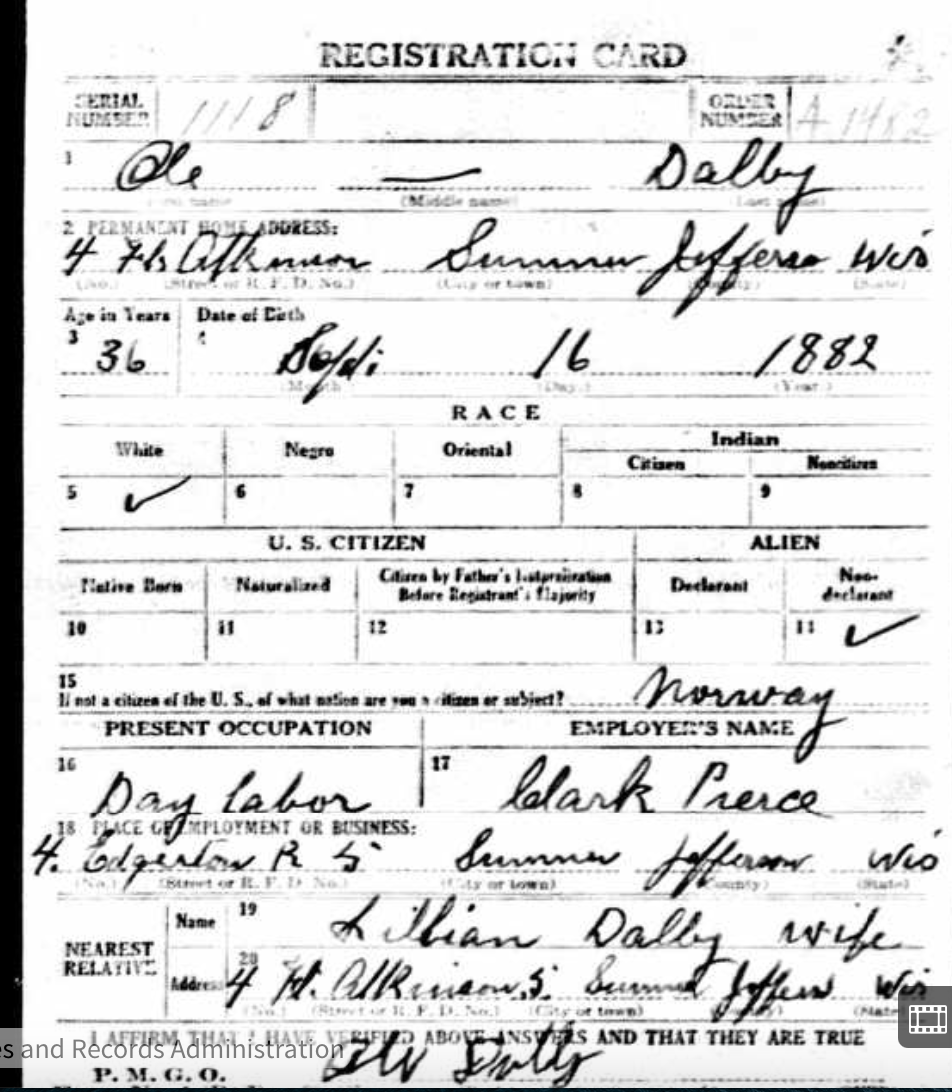 REGISTRATION CARD
SERIAL NUMBER 1118 ORDER NUMBER A 1482
1 Ole — Dalby
(First name) (Middle name) (Last name)
2 PERMANENT HOME ADDRESS:
4 Ft. Atkinson Sumner Jefferso Wis
(No.) (Street or R. F. D. No.) (City or town) (County) (State)
Age in Years Date of Birth
3 36 4 Sept. 16 1882
(Month) (Day.) (Year.)
RACE
White Negro Oriental Indian
Citizen Noncitizen
5 ✓ 6 7 8 9
U. S. CITIZEN ALIEN
Native Born Naturalized Citizen by Father's Naturalization Before Registrant's Majority Declarant Non-declarant
10 11 12 13 14 ✓
15
If not a citizen of the U. S., of what nation are you a citizen or subject? Norway
PRESENT OCCUPATION EMPLOYER'S NAME
16 Day labor 17 Clark Pierce
18 PLACE OF EMPLOYMENT OR BUSINESS:
4. Edgerton R 5 Sumner Jefferson Wis
(No.) (Street or R. F. D. No.) (City or town) (County) (State)
NEAREST RELATIVE
Name 19 Lillian Dalby wife
Address 20 4 Ft. Atkinson 5. Sumner Jefferso Wis
(No.) (Street or R. F. D. No.) (City or town) (County) (State)
I AFFIRM THAT I HAVE VERIFIED ABOVE ANSWERS AND THAT THEY ARE TRUE
s and Records Administration
P. M. G. O.